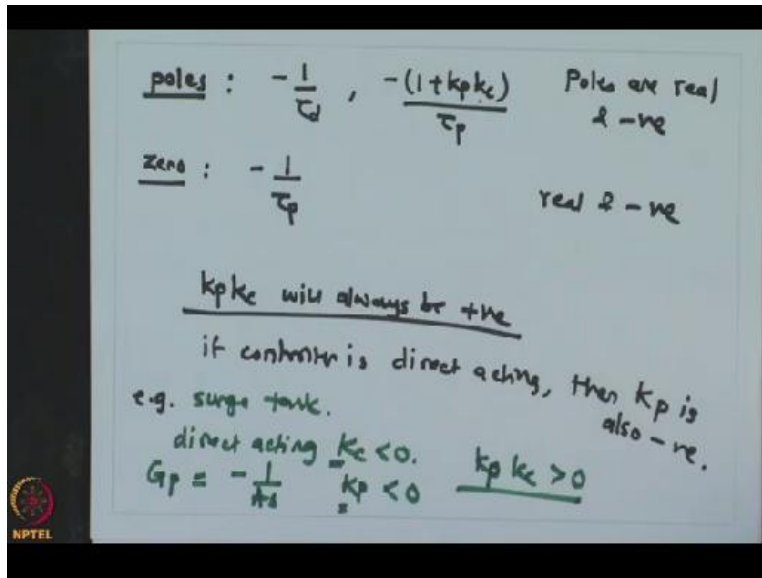 poles : - 1/τd , -(1+kpkc)/τp Poles are real
& -ve
zero : - 1/τp real & -ve
kpkc will always be +ve
if controller is direct acting, then kp is
also -ve.
e.g. surge tank.
direct acting kc < 0.
Gp = - 1/As kp < 0 kp kc > 0
NPTEL